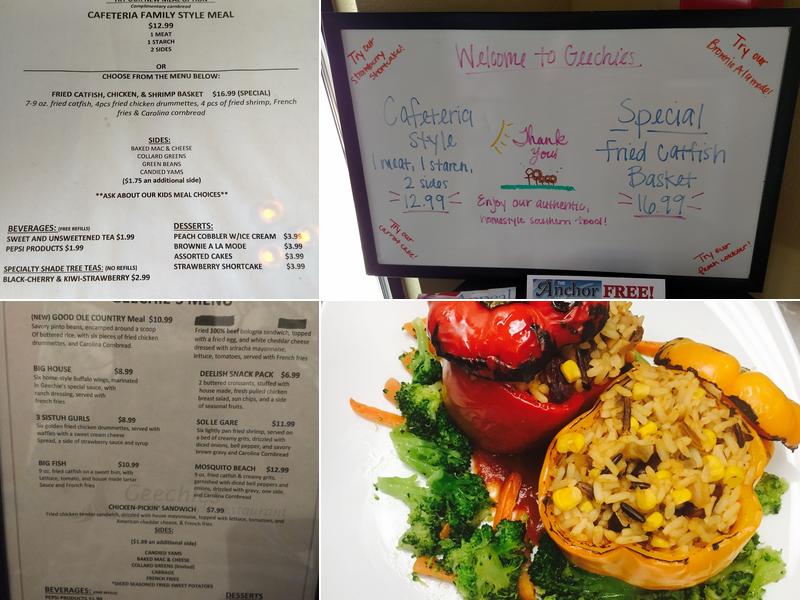 Complimentary cornbread
CAFETERIA FAMILY STYLE MEAL
$12.99
1 MEAT
1 STARCH
2 SIDES
OR
CHOOSE FROM THE MENU BELOW:
FRIED CATFISH, CHICKEN, & SHRIMP BASKET $16.99 (SPECIAL)
7-9 oz. fried catfish, 4pcs fried chicken drummettes, 4 pcs of fried shrimp, French
fries & Carolina cornbread
SIDES:
BAKED MAC & CHEESE
COLLARD GREENS
GREEN BEANS
CANDIED YAMS
($1.75 an additional side)
**ASK ABOUT OUR KIDS MEAL CHOICES**
BEVERAGES: (FREE REFILLS)
SWEET AND UNSWEETENED TEA $1.99
PEPSI PRODUCTS $1.99
SPECIALTY SHADE TREE TEAS: (NO REFILLS)
BLACK-CHERRY & KIWI-STRAWBERRY $2.99
DESSERTS:
PEACH COBBLER W/ICE CREAM $3.99
BROWNIE A LA MODE $3.99
ASSORTED CAKES $3.99
STRAWBERRY SHORTCAKE $3.99
Try our
strawberry
shortcake!
Welcome to Geechies
Try our
Brownie Alamode!
Cafeteria
Style
1 meat, 1 starch,
2 sides
12.99
Thank
You!
Enjoy our authentic,
homestyle southern food!
Special
fried Catfish
Basket
16.99
Try our
carrot cake!
Try our
Peach cobbler!
Anchor FREE!
GEECHIE'S MENU
(NEW) GOOD OLE COUNTRY Meal $10.99
Savory pinto beans, encamped around a scoop
Of buttered rice, with six pieces of fried chicken
drummettes, and Carolina Cornbread.
BIG HOUSE $8.99
Six home-style buffalo wings, marinated
in Geechie's special sauce, with
ranch dressing, served with
french fries
3 SISTUH GURLS $8.99
Six golden fried chicken drummettes, served with
waffles with a sweet cream cheese
Spread, a side of strawberry sauce and syrup
BIG FISH $10.99
9 oz. fried catfish on a sweet bun, with
Lettuce, tomato, and house made tartar
Sauce and French fries
Fried 100% beef bologna sandwich, topped
with a fried egg, and white cheddar cheese
dressed with sriracha mayonnaise,
lettuce, tomatoes, served with French fries
DEELISH SNACK PACK $6.99
2 buttered croissants, stuffed with
house made, fresh pulled chicken
breast salad, sun chips, and a side
of seasonal fruits.
SOLLE GARE $11.99
Six lightly pan fried shrimp, served on
a bed of creamy grits, drizzled with
diced onions, bell pepper, and savory
brown gravy and Carolina Cornbread
MOSQUITO BEACH $12.99
9 oz. fried catfish & creamy grits,
garnished with diced bell peppers and
onions, drizzled with gravy, one side,
and Carolina Cornbread
CHICKEN-PICKIN' SANDWICH $7.99
Fried chicken tender sandwich, drizzled with house mayonnaise, topped with lettuce, tomatoes, and
American cheddar cheese, & French fries
SIDES:
($1.89 an additional side)
CANDIED YAMS
BAKED MAC & CHEESE
COLLARD GREENS (limited)
CABBAGE
FRENCH FRIES
*DICED SEASONED FRIED SWEET POTATOES
BEVERAGES:
DESSERTS
PEPSI PRODUCTS